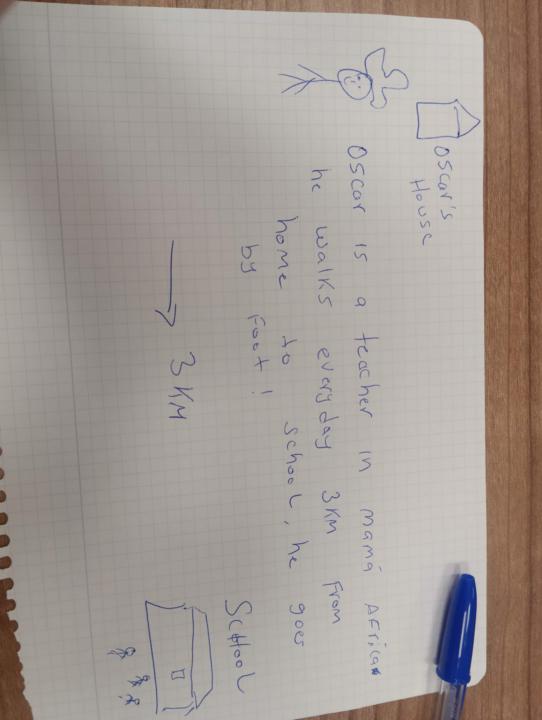 Oscar's
House
Oscar is a teacher in mamá Africa
he walks everyday 3KM from
home to school, he goes
by foot!
3 KM
SCHOOL